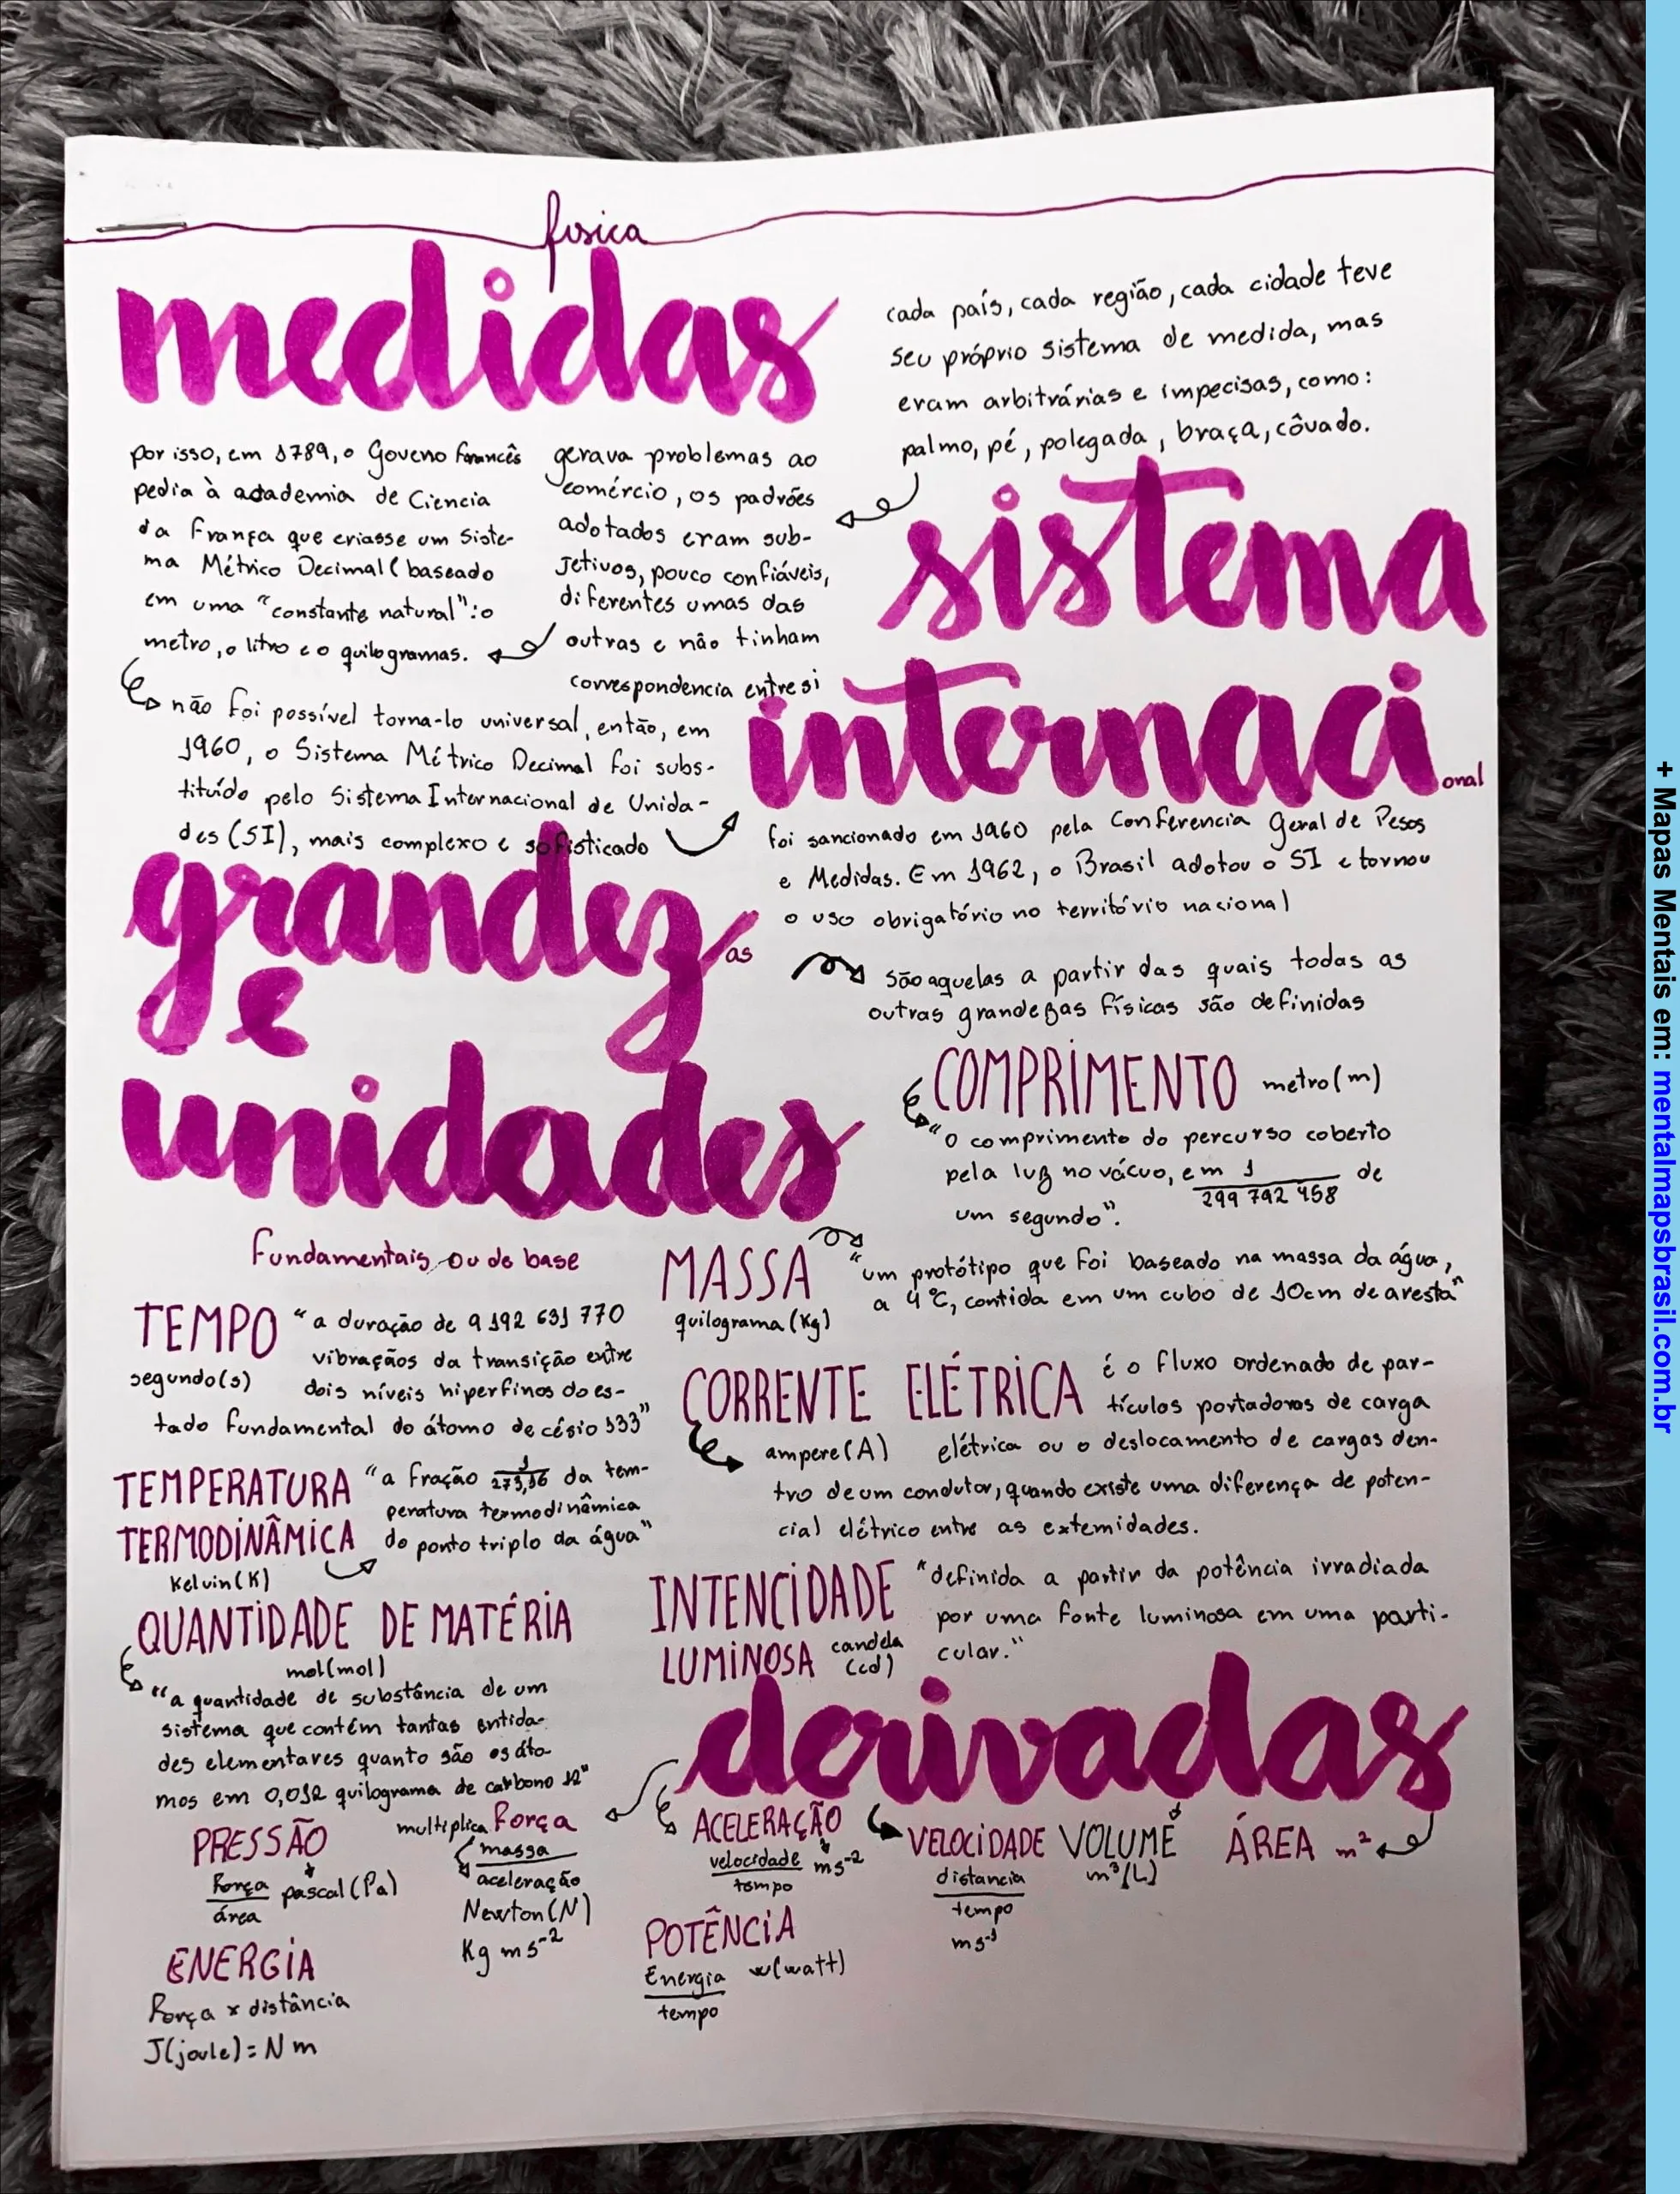 física
medidas
cada país, cada região, cada cidade teve
seu próprio sistema de medida, mas
eram arbitrárias e impecisas, como:
palmo, pé, polegada, braça, côvado.
gerava problemas ao
comércio, os padrões
adotados eram sub-
jetivos, pouco confiáveis,
diferentes umas das
outras e não tinham
correspondencia entre si
por isso, em 1789, o Goveno francês
pedia à academia de Ciencia
da França que criasse um Siste-
ma Métrico Decimal (baseado
em uma "constante natural": o
metro, o litro e o quilogramas.
não foi possível torna-lo universal, então, em
1960, o Sistema Métrico Decimal foi subs-
tituído pelo Sistema Internacional de Unida-
des (SI), mais complexo e sofisticado
sistema
internaci
onal
foi sancionado em 1960 pela Conferencia Geral de Pesos
e Medidas. Em 1962, o Brasil adotou o SI e tornou
o uso obrigatório no território nacional
grandez
as
e
unidades
Fundamentais ou de base
são aquelas a partir das quais todas as
outras grandezas físicas são definidas
COMPRIMENTO metro (m)
"o comprimento do percurso coberto
pela luz no vácuo, em 1 de
299 792 458
um segundo".
MASSA
quilograma (Kg)
"um protótipo que foi baseado na massa da água,
a 4°C, contida em um cubo de 10cm de aresta"
TEMPO
segundo(s)
"a duração de 9 192 631 770
vibraçãos da transição entre
dois níveis hiperfinos do es-
tado fundamental do átomo de césio 133"
CORRENTE ELÉTRICA
ampere (A)
é o fluxo ordenado de par-
tículos portadoras de carga
elétrica ou o deslocamento de cargas den-
tro de um condutor, quando existe uma diferença de poten-
cial elétrico entre as extemidades.
TEMPERATURA
TERMODINÂMICA
Kelvin (K)
"a fração 1 da tem-
273,16
peratura termodinâmica
do ponto triplo da água"
INTENCIDADE
LUMINOSA candela
(cd)
"definida a partir da potência irradiada
por uma fonte luminosa em uma parti-
cular."
QUANTIDADE DE MATÉRIA
mol (mol)
"a quantidade de substância de um
sistema que contém tantas entida-
des elementares quanto são os áto-
mos em 0,012 quilograma de carbono 12"
derivadas
PRESSÃO
Força
área
pascal (Pa)
Força
multiplica
massa
aceleração
Newton (N)
Kg m s⁻²
ACELERAÇÃO
velocidade
tempo
ms⁻²
VELOCIDADE
distancia
tempo
ms⁻¹
VOLUME
m³ (L)
ÁREA m²
ENERGIA
Força x distância
J (joule) = N m
POTÊNCIA
Energia
tempo
w (watt)
+ Mapas Mentais em: mentalmapsbrasil.com.br